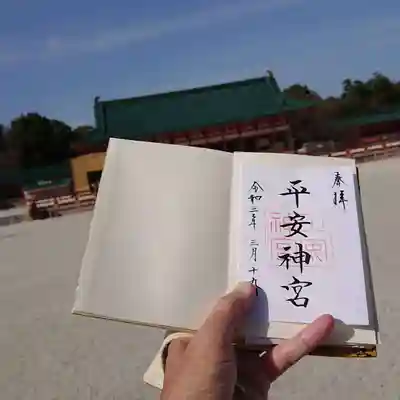 奉拝
平安神宮
令和三年 三月 十九